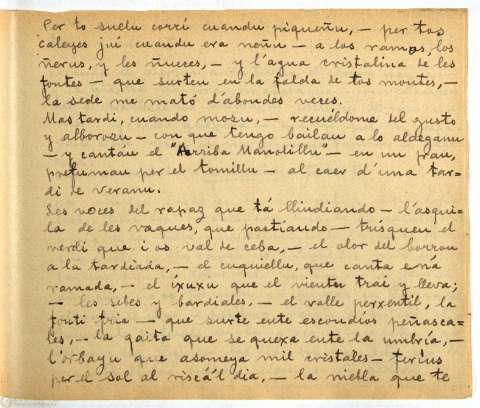 Per to suelu corrí cuandu piqueñu, — per tos
caleyes juí cuandu era neñu — a los ramos, los
ñerus, y les ñueces, — y l'agua cristalina de les
fontes — que surten en la falda de tos montes, —
la sede me mató d'abondes veces.
Mas tardi, cuando mozu, — recuéldome del gusto
y alborozu — con que tengo bailau a lo aldeganu
— y cantáu el "Arriba Manolillu" — en un prau,
prefumau per el tomillu — al caer d'una tar-
di de veranu.
Les voces del rapaz que tá llindiando — l'asqui-
la de les vaques, que pastiando — trisquen el
verdi que i os val de ceba, — el olor del borrou
a la tardiada, — el cuquiellu, que canta ená
ramada, — el ixuxu que el vientu trai y lleva;
— les sebes y bardiales, — el valle perxentil, la
fonti fria — que surte ente escondíos peñasca-
les, — la gaita que se quexa ente la umbría, —
l'orbayu que asomeya mil cristales — feríus
per el sol al riscá'l dia, — la niebla que te